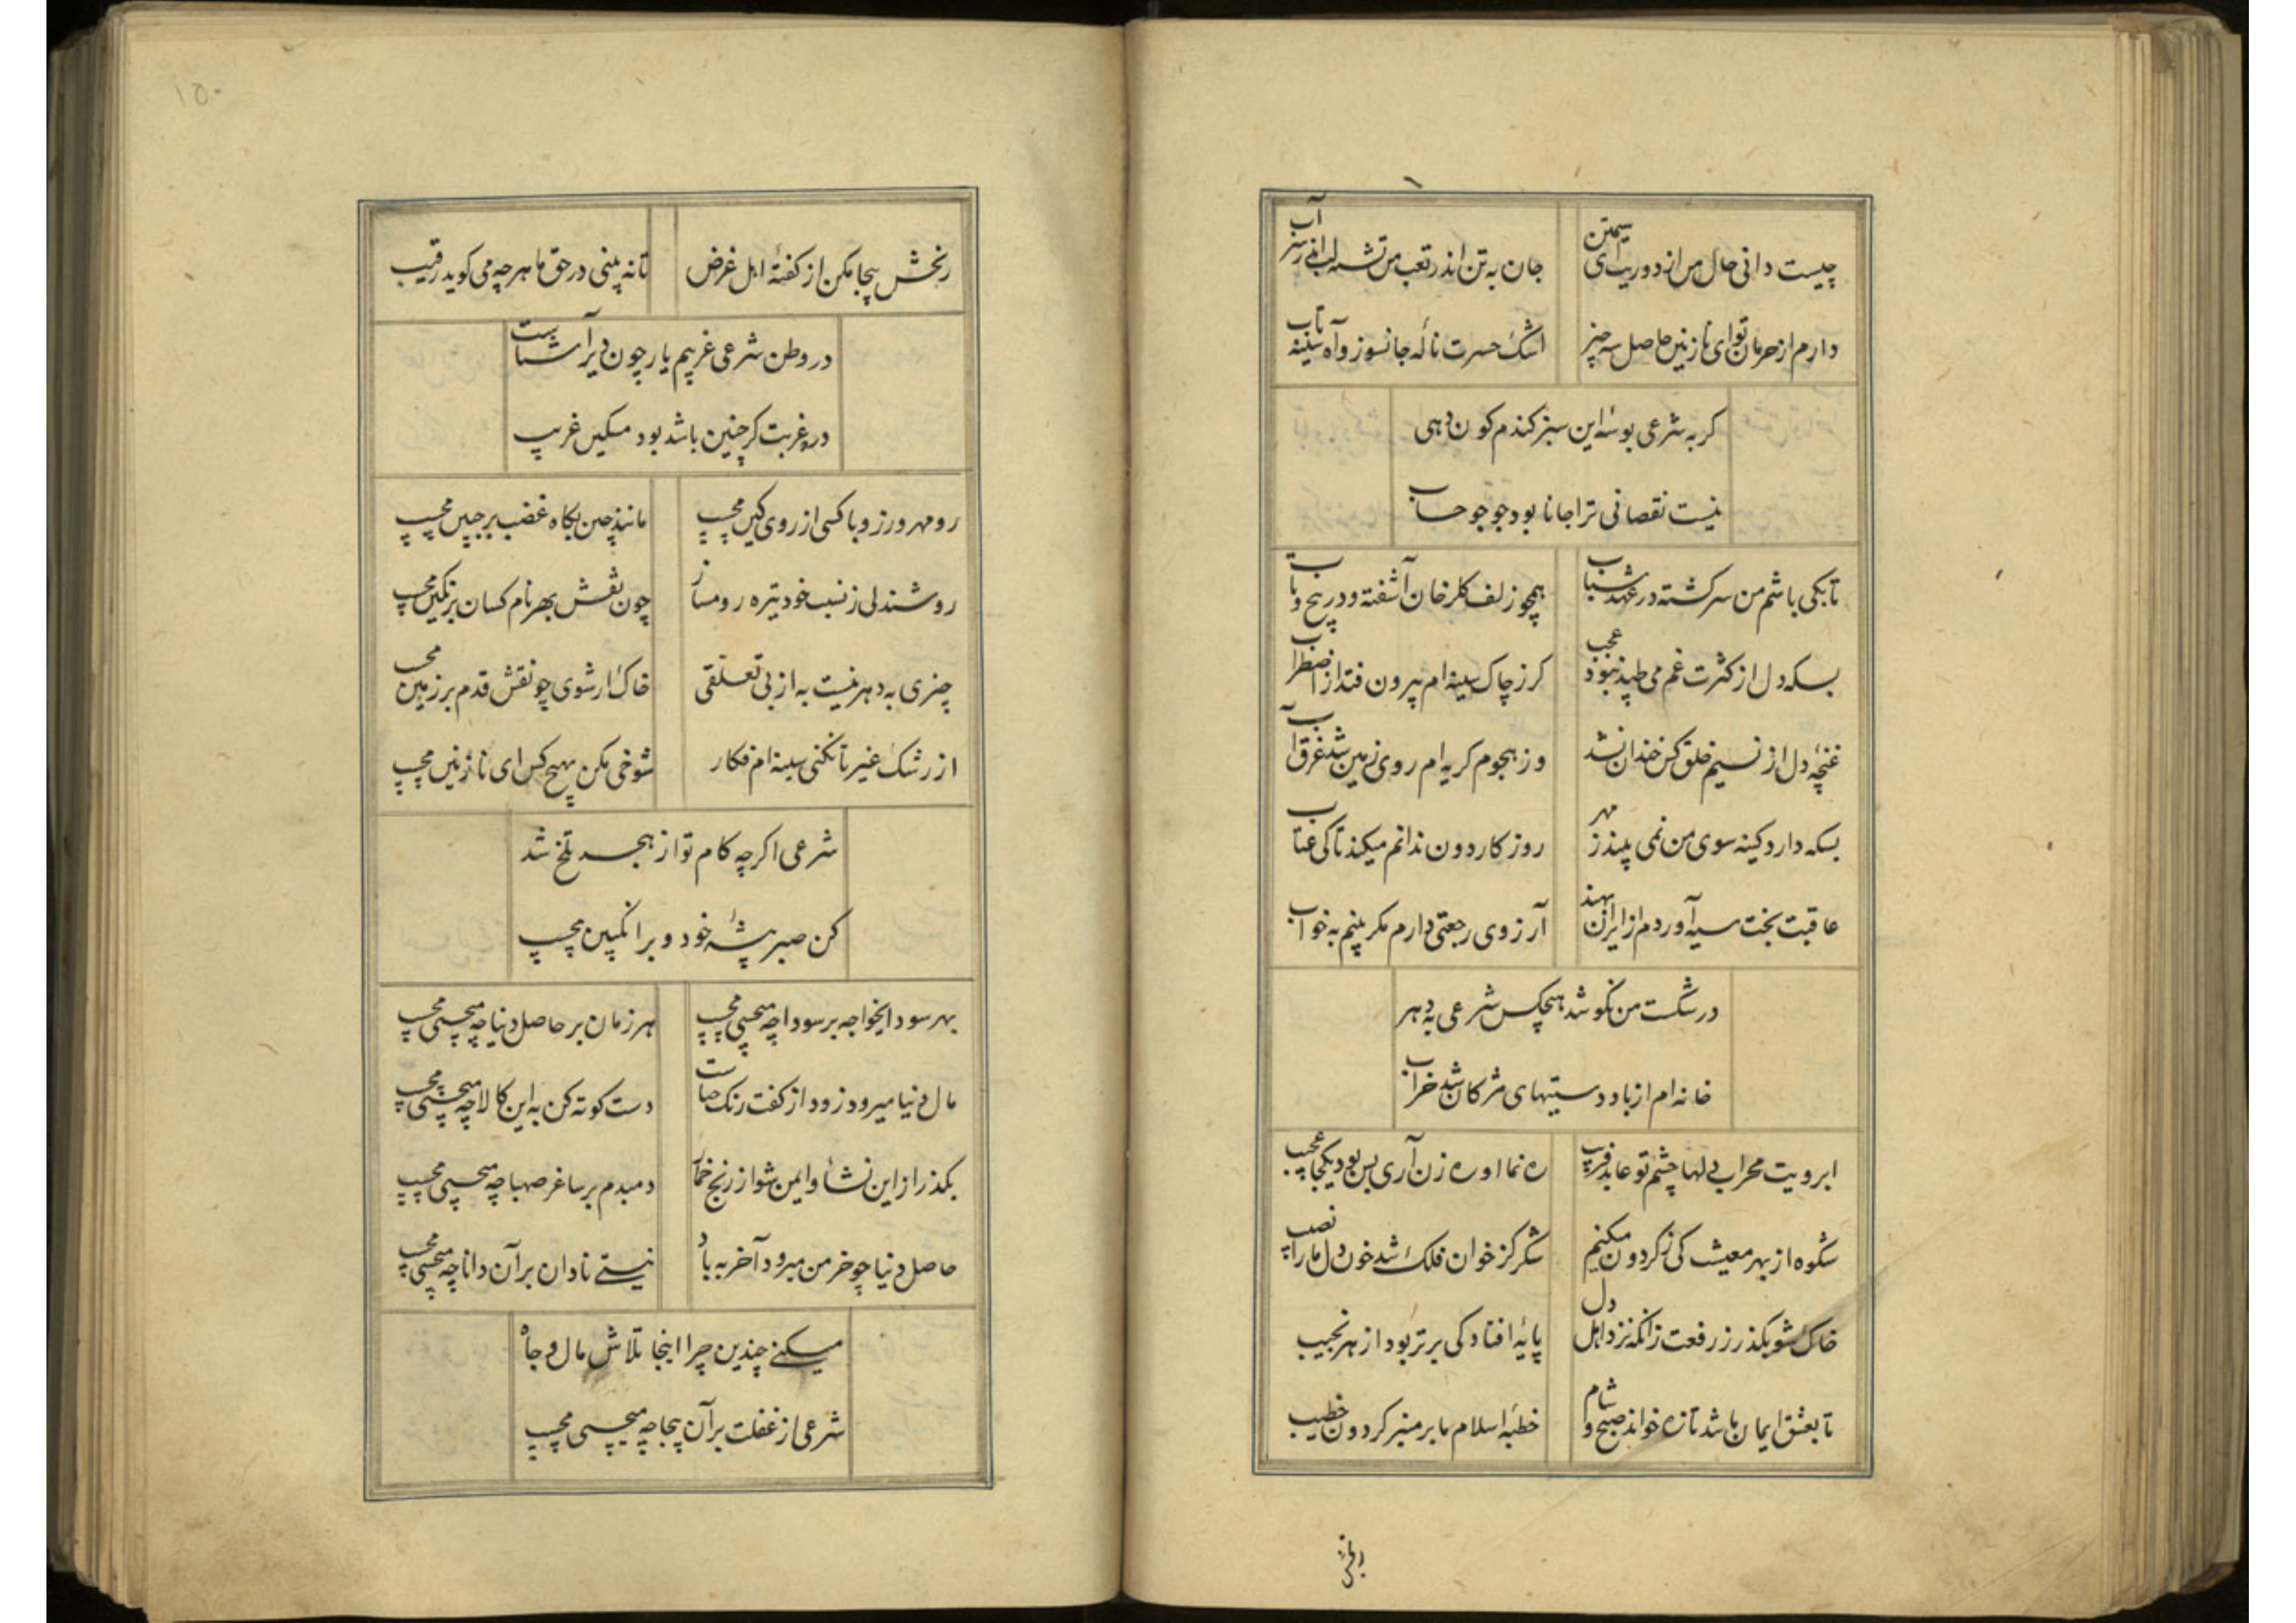 چیست دانی حال من از دوریت ای سیمتن
جان به تن اندر تعب من تشنه لب آب
دارم از حرمان تو ای نازنین حاصل سه چیز
اشک حسرت ناله جانسوز و آه سینه تاب
کر به شرعی بوسهٔ این سبز کندم کون دهی
نیست نقصانی ترا جانا بود جو جو حساب
تا بکی باشم من سرکشته در عهد شباب
همچو زلف کلرخان آشفته و در پیچ و تاب
بسکه دل از کثرت غم می طپد نبود عجب
کر ز چاک سینه ام بیرون فتد از اضطراب
غنچهٔ دل از نسیم خلق کس خندان نشد
وز هجوم کریه ام روی زمین شد غرق آب
بسکه دارد کینه سوی من نمی بیند ز مهر
روزکار دون ندانم میکند تا کی عتاب
عاقبت بخت سیه آوردم از ایران بهند
آرزوی رجعتی دارم مکر بینم به خواب
در شکست من نکوشد هیچکس شرعی به دهر
خانه ام از باد دستیهای مژکان شد خراب
ابرویت محراب دلها چشم تو عابد فریب
ره نما و ره زن آری بس بود یکجا عجیب
شکوه از بهر معیشت کی ز کردون میکنیم
شکر کز خوان فلک شد خون دل ما را نصیب
خاک شو بکذر ز رفعت زانکه نزد اهل دل
پایهٔ افتادکی برتر بود از هر نجیب
تا بعشق ایمان ما شد تازه خواند صبح و شام
خطبهٔ اسلام ما بر منبر کردون خطیب
رنجش
۱۵۰
رنجش بیجا مکن از کفتهٔ اهل غرض
تا نه بینی در حق ما هر چه می کوید رقیب
در وطن شرعی غریبم یار چون دیر آشناست
در غربت کر چنین باشد بود مسکین غریب
رو مهر ورز و با کسی از روی کین مچسپ
مانند چین بکاه غضب بر جبین مچسپ
روشندلی ز نسبت خود تیره رو مساز
چون نقش بهر نام کسان بر نکین مچسپ
چیزی به دهر نیست به از بی تعلقی
خاک ار شوی چو نقش قدم بر زمین مچسپ
از رشک غیر تا نکنی سینه ام فکار
شوخی مکن بهیچ کس ای نازنین مچسپ
شرعی اکرچه کام تو از هجر تلخ شد
کن صبر پیشهٔ خود و بر انکبین مچسپ
بهر سود ایخواجه بر سودا چه میچسپی مچسپ
هر زمان بر حاصل دنیا چه میچسپی مچسپ
مال دنیا میرود زود از کفت رنک حناست
دست کوته کن به این کالا چه میچسپی مچسپ
بکذر از این نشأ و ایمن شو از رنج خمار
دمبدم بر ساغر صهبا چه میچسپی مچسپ
حاصل دنیا چو خرمن میرود آخر به باد
نیستی نادان بر آن دانا چه میچسپی مچسپ
میکنی چندین چرا اینجا تلاش مال و جاه
شرعی از غفلت بر آن بیجا چه میچسپی مچسپ